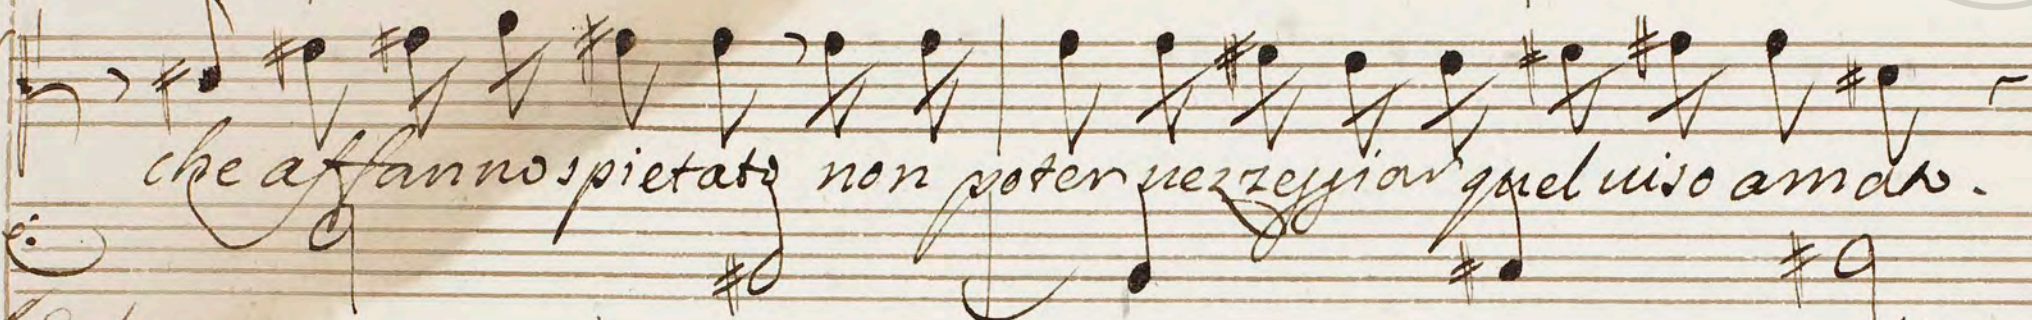 che affanno spietato non poter uezzeggiar quel uiso amato.